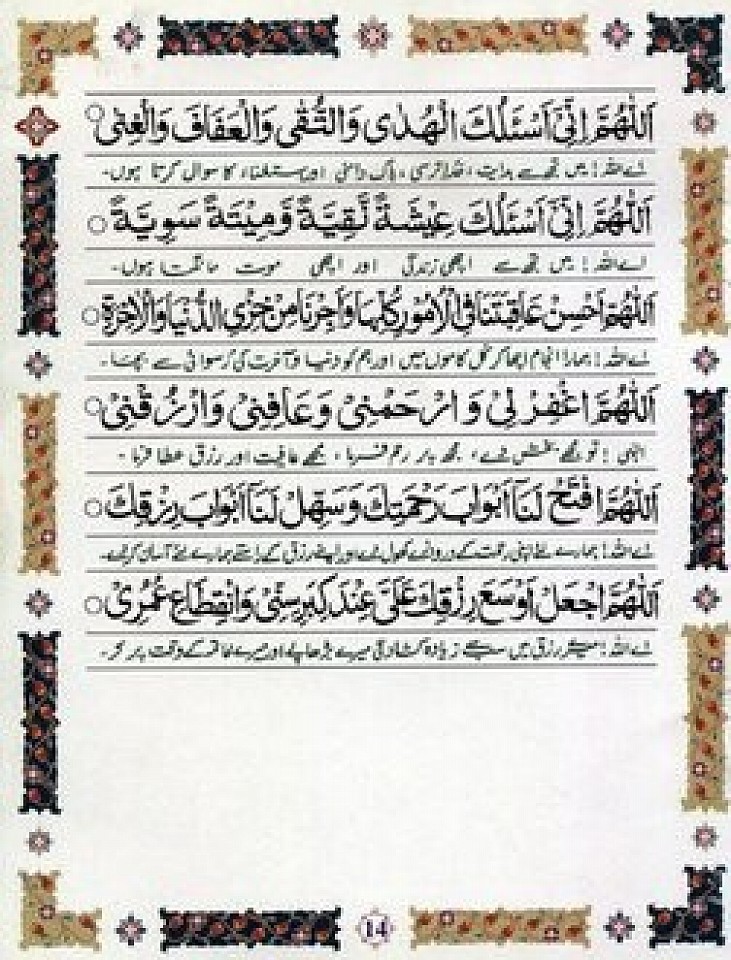 اَللّٰهُمَّ اِنِّیْٓ اَسْئَلُكَ الْهُدٰی وَالتُّقٰی وَالْعَفَافَ وَالْغِنٰی ○
اے اللہ! میں تجھ سے ہدایت، خدا ترسی، پاک دامنی اور استغناء کا سوال کرتا ہوں۔
اَللّٰهُمَّ اِنِّیْٓ اَسْئَلُكَ عِیْشَةً نَّقِیَّةً وَّمِیْتَةً سَوِیَّةً ○
اے اللہ! میں تجھ سے اچھی زندگی اور اچھی موت مانگتا ہوں۔
اَللّٰهُمَّ اَحْسِنْ عَاقِبَتَنَا فِی الْاُمُوْرِ كُلِّهَا وَاَجِرْنَا مِنْ خِزْیِ الدُّنْیَا وَالْاٰخِرَةِ ○
اے اللہ! ہمارا انجام اچھا کر کل کاموں میں اور ہم کو دنیا و آخرت کی رسوائی سے بچا۔
اَللّٰهُمَّ اغْفِرْ لِیْ وَارْحَمْنِیْ وَعَافِنِیْ وَارْزُقْنِیْ ○
الٰہی! تو مجھے بخش دے، مجھ پر رحم فرما، مجھے عافیت اور رزق عطا فرما۔
اَللّٰهُمَّ افْتَحْ لَنَآ اَبْوَابَ رَحْمَتِكَ وَسَهِّلْ لَنَآ اَبْوَابَ رِزْقِكَ ○
اے اللہ! ہمارے لئے اپنی رحمت کے دروازے کھول دے اور اپنے رزق کے راستے ہمارے لئے آسان کر دے۔
اَللّٰهُمَّ اجْعَلْ اَوْسَعَ رِزْقِكَ عَلَیَّ عِنْدَ كِبَرِ سِنِّیْ وَانْقِطَاعِ عُمُرِیْ ○
اے اللہ! میرے رزق میں سب سے زیادہ کشادگی میرے بڑھاپے اور میرے خاتمہ کے وقت پر کر۔
14